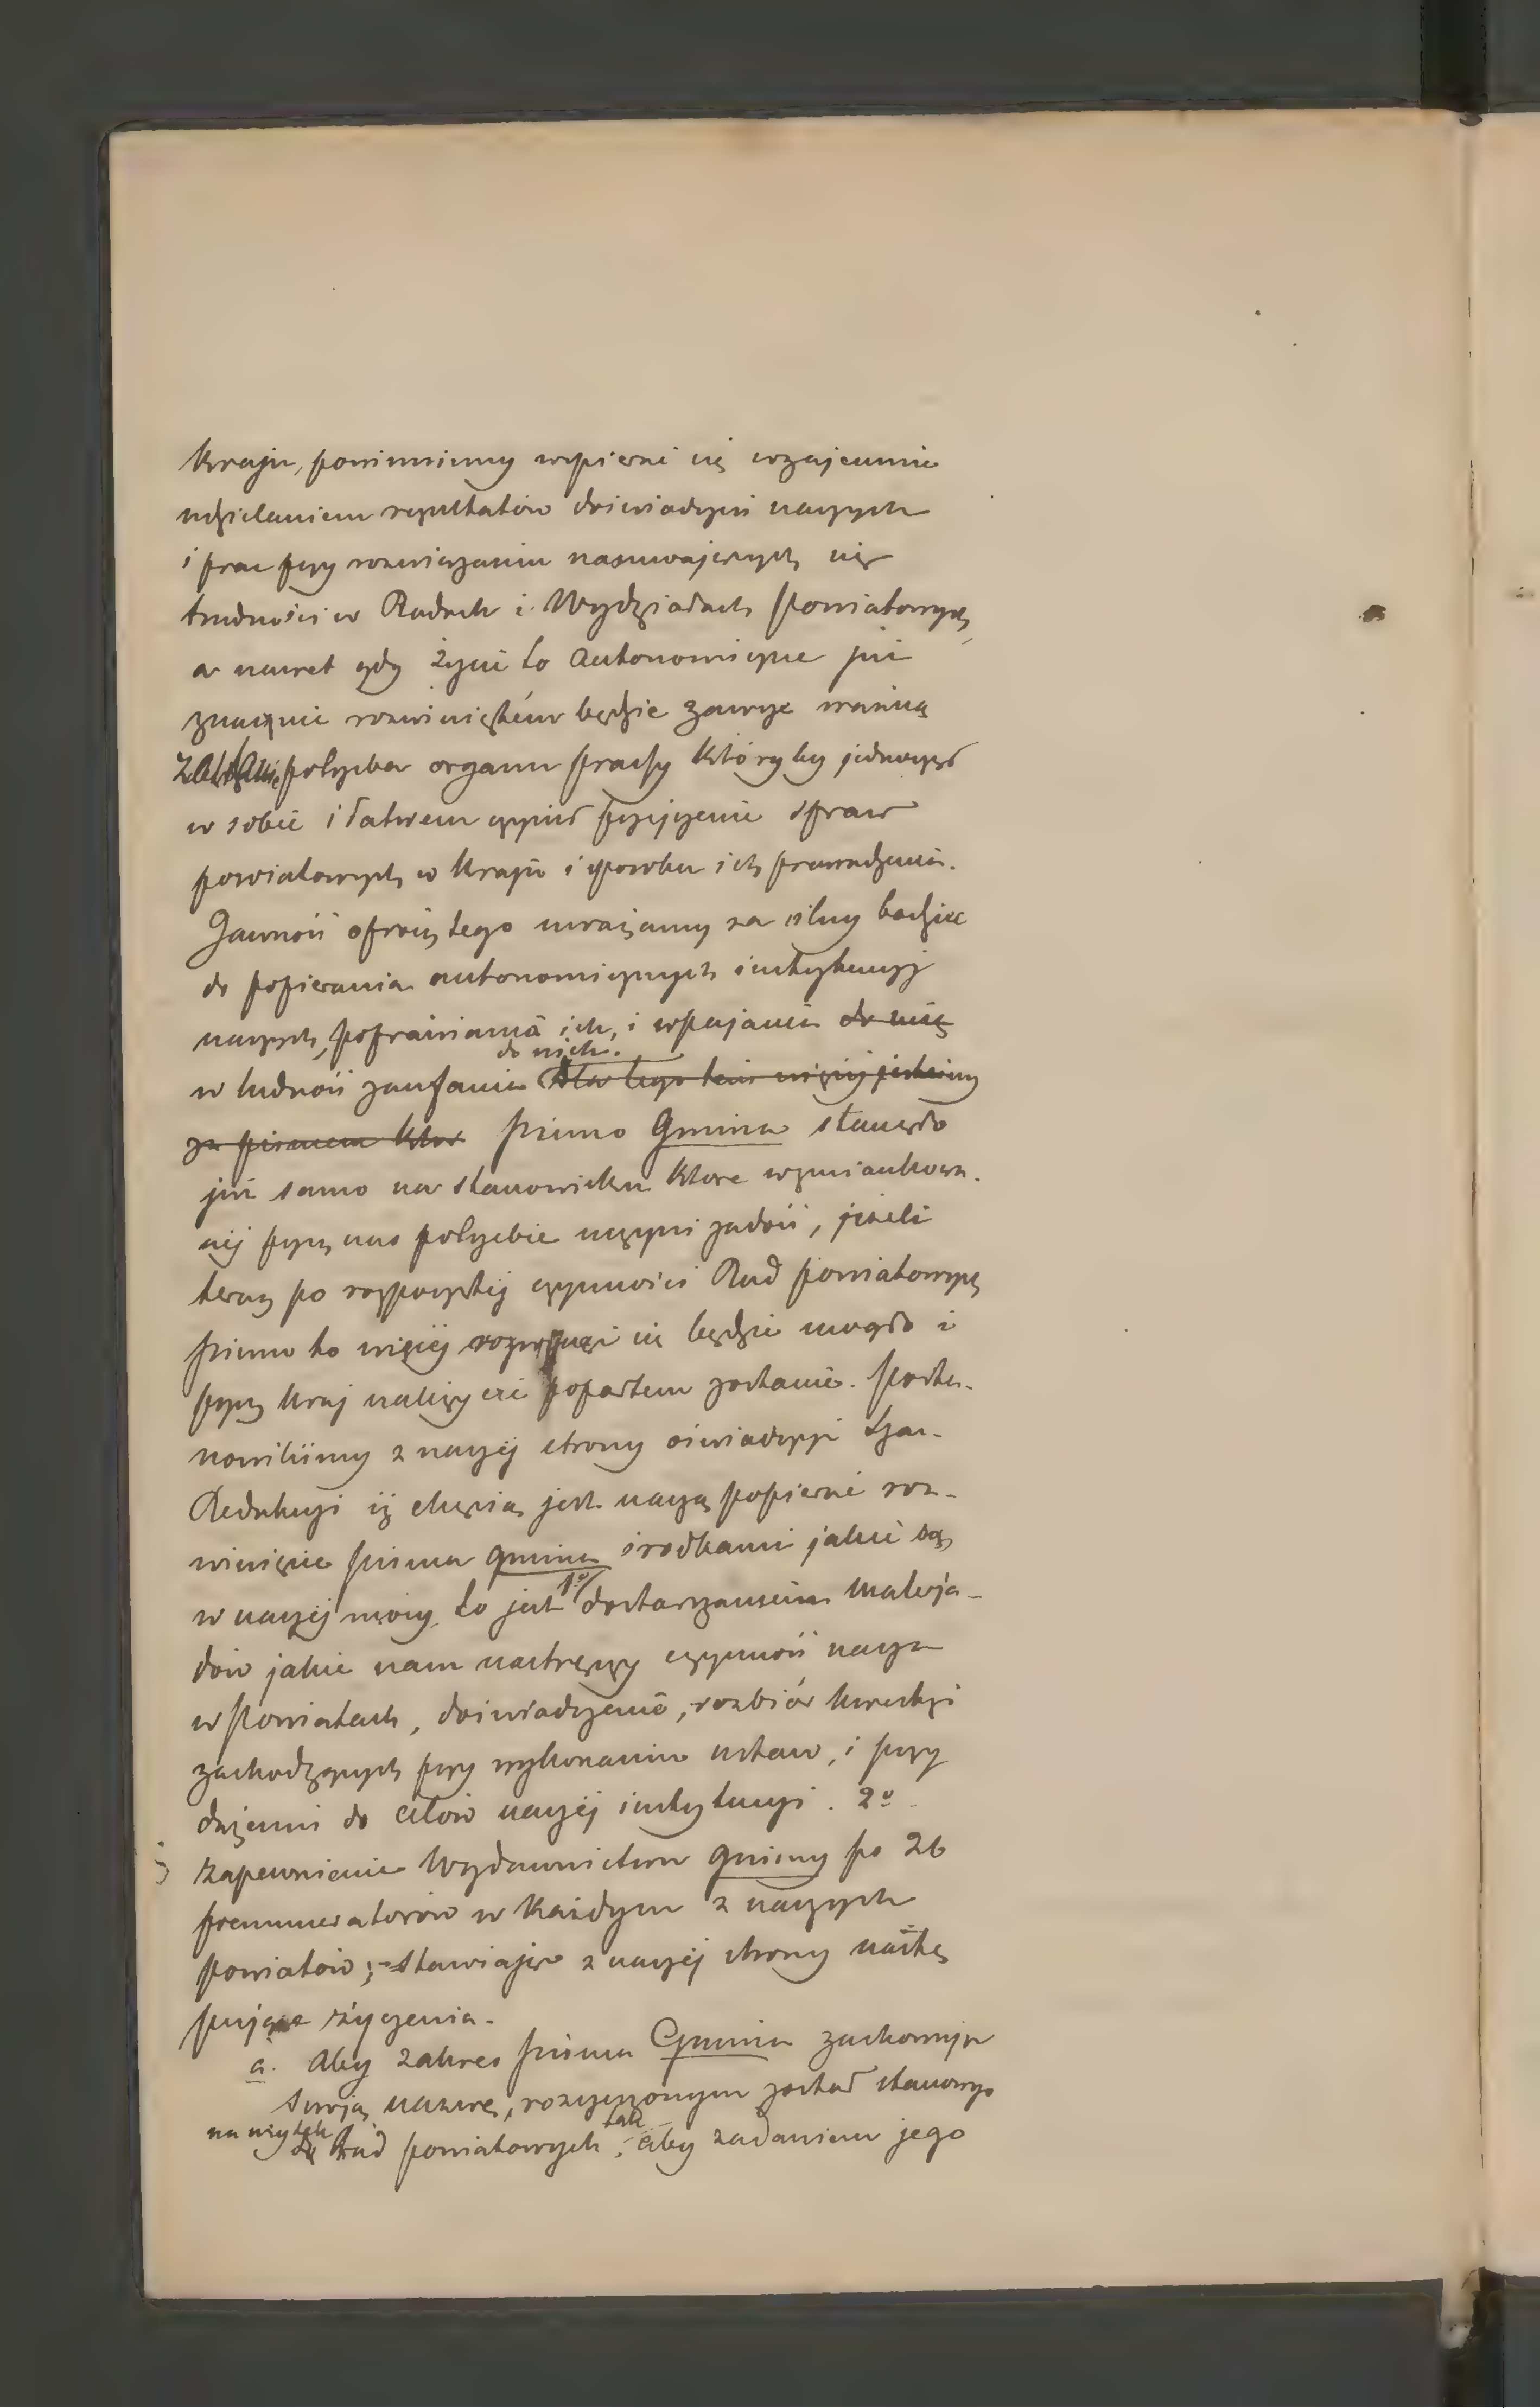 kraju, powinniśmy wspierać się wzajemnie
udzielaniem rezultatów doświadczeń naszych
i prac przy rozwiązaniu nasuwających się
trudności w Radach i Wydziałach powiatowych,
a nawet gdy życie to autonomiczne już
znacznie rozwiniętém będzie zawsze ważną
potrzeba organu prasy któryby jednoczył
w sobie i łatwem czynił przejrzenie spraw
powiatowych w kraju i sposobu ich prowadzenia.
Jawność oprócz tego uważamy za silny bodziec
do popierania autonomicznych instytucyj
naszych, poprawiania ich, i wpajania do nich
do nich.
w ludność zaufania Dla tego też więcej jesteśmy
za pismem któr pismo Gmina stanęło
już samo na stanowisku które wzmiankowa-
nej przez nas potrzebie uczyni zadość, jeżeli
teraz po rozpoczętej czynności Rad powiatowych
pismo to więcej rozwinąć się będzie mogło i
przez kraj należycie popartem zostanie. Posta-
nowiliśmy z naszej strony oświadczyć Szan.
Redakcyi iż chęcią jest naszą popierać roz-
winięcie pisma Gmina środkami jakie są
w naszej mocy to jest 1º dostarczaniem materja-
łów jakie nam nastręczy czynność nasza
w powiatach, doświadczenie, rozbiór kwestyi
zachodzących przy wykonaniu ustaw, i przy
dążeniu do celów naszej instytucyi. 2º
zapewnienie Wydawnictwu Gminy po 26
prenumeratorów w każdym z naszych
powiatów; stawiając z naszej strony nastę
pujące życzenia.
a. Aby zakres pisma Gmina zachowując
swoją nazwę, rozszerzonym został stanowczo
na użytek tak
Rad powiatowych, aby zadaniem jego